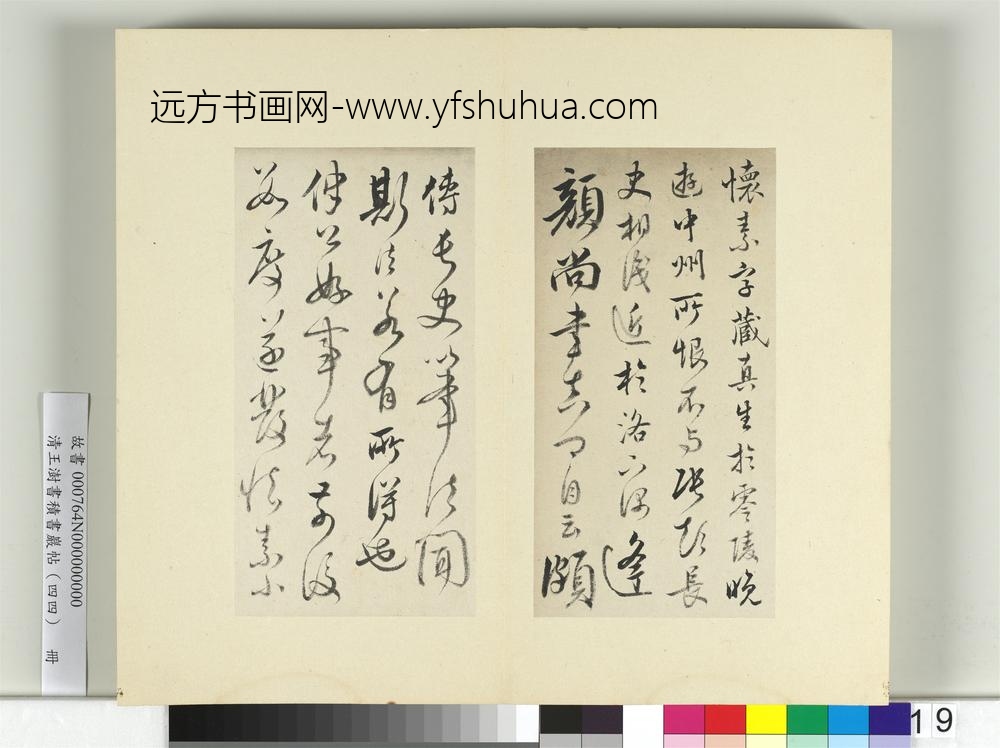 远方书画网-www.yfshuhua.com
懷素字藏真生於零陵晚
遊中州所恨不与張顛長
史相識近於洛下偶逢
顏尚書真卿自云頗
傳長史筆法聞
斯法若有所得也
律公好事者前後
數度遂發懷素小
故書 000764N000000000
清王澍書積書巖帖（四四） 冊
19